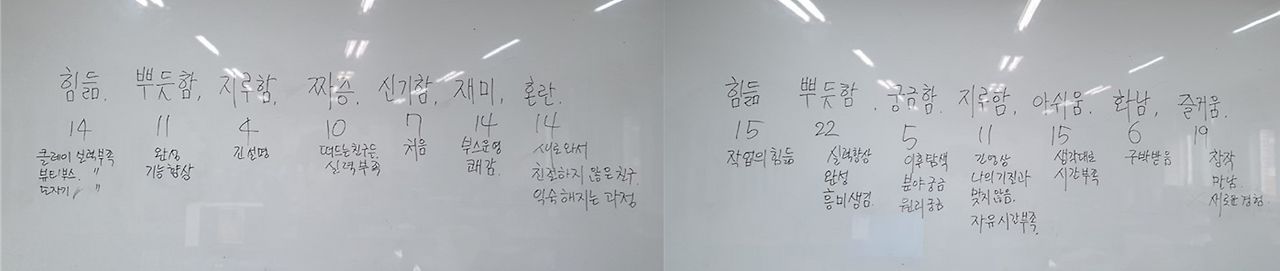 힘듦. 뿌듯함, 지루함, 짜증. 신기함, 재미, 혼란.
14 11 4 10 7 14 14
클레이 실력부족
뷰티부스. "
도자기 "
완성
기능향상
긴 설명
떠드는친구들.
실력부족
처음
부스운영
쾌감.
새로와서
친절하지 않은 친구.
익숙해지는 과정
힘듦 뿌듯함. 궁금함. 지루함, 아쉬움. 화남, 즐거움.
15 22 5 11 15 6 19
작업의 힘듦
실력향상
완성
흥미생김.
이후탐색
분야궁금
원리궁금
긴영상
나의기질과
맞지않음.
자유시간부족.
생각대로
시간부족
구박받음
창작
만남.
새로운경험